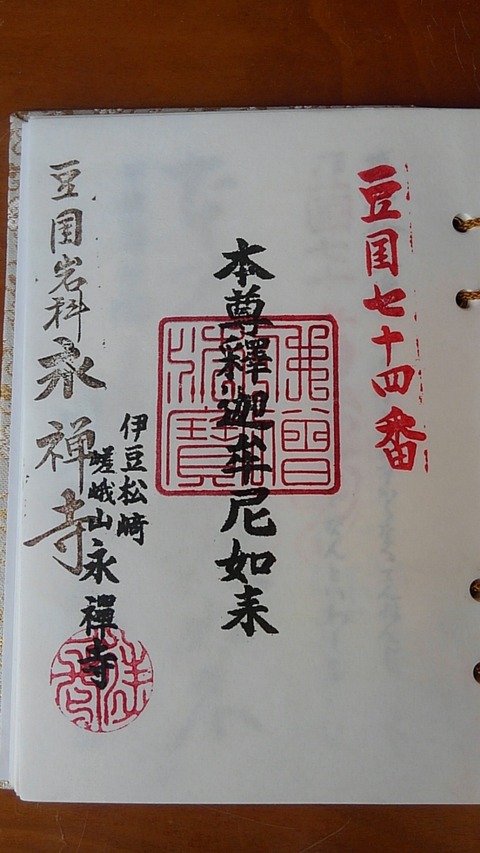 豆国七十四番
本尊釋迦牟尼如来
佛法僧寶
伊豆松崎
嵯峨山永禪寺
豆国岩科永禅寺